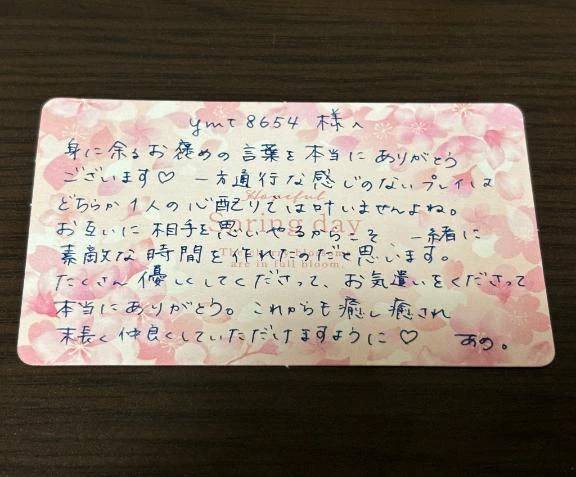 ymt8654 様へ
身に余るお褒めの言葉を本当にありがとう
ございます♡ 一方通行な感じのないプレイは
Hopeful
どちらか1人の心配りでは叶いませんよね。
Spring day
お互いに相手を思いやるからこそ 一緒に
素敵な時間を作れたのだと思います。
are in full bloom.
たくさん優しくしてくださって、お気遣いをくださって
本当にありがとう。これからも癒し癒され
末長く仲良くしていただけますように♡ あの。